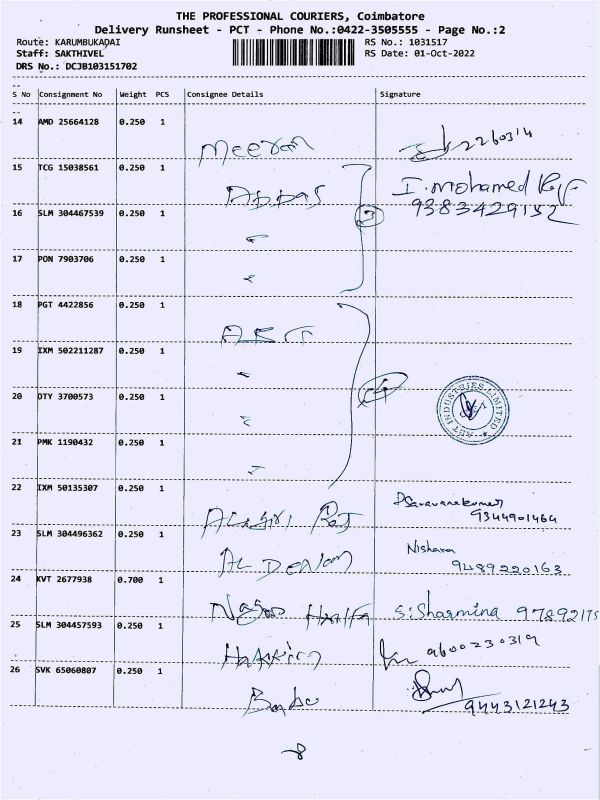 THE PROFESSIONAL COURIERS, Coimbatore
Delivery Runsheet - PCT - Phone No.:0422-3505555 - Page No.:2
Route: KARUMBUKADAI RS No.: 1031517
Staff: SAKTHIVEL RS Date: 01-Oct-2022
DRS No.: DCJB103151702
S No Consignment No Weight PCS Consignee Details Signature
14 AMD 25664128 0.250 1
Meeran 2260314
15 TCG 15038561 0.250 1
Abbas I. Mohamed
16 SLM 304467539 0.250 1 3 9383429152
17 PON 7903706 0.250 1
18 PGT 4422856 0.250 1
ART
19 IXM 502211287 0.250 1
20 OTY 3700573 0.250 1 4
ART INDUSTRIES LIMITED
21 PMK 1190432 0.250 1
22 IXM 50135307 0.250 1
Raj Saravanakumar
9344901464
23 SLM 304496362 0.250 1
AL Nishana
9489220163
24 KVT 2677938 0.700 1
S. Sharmina 97892175
25 SLM 304457593 0.250 1
Hakkim 9600230319
26 SVK 65060807 0.250 1
Babu 9443121243
8